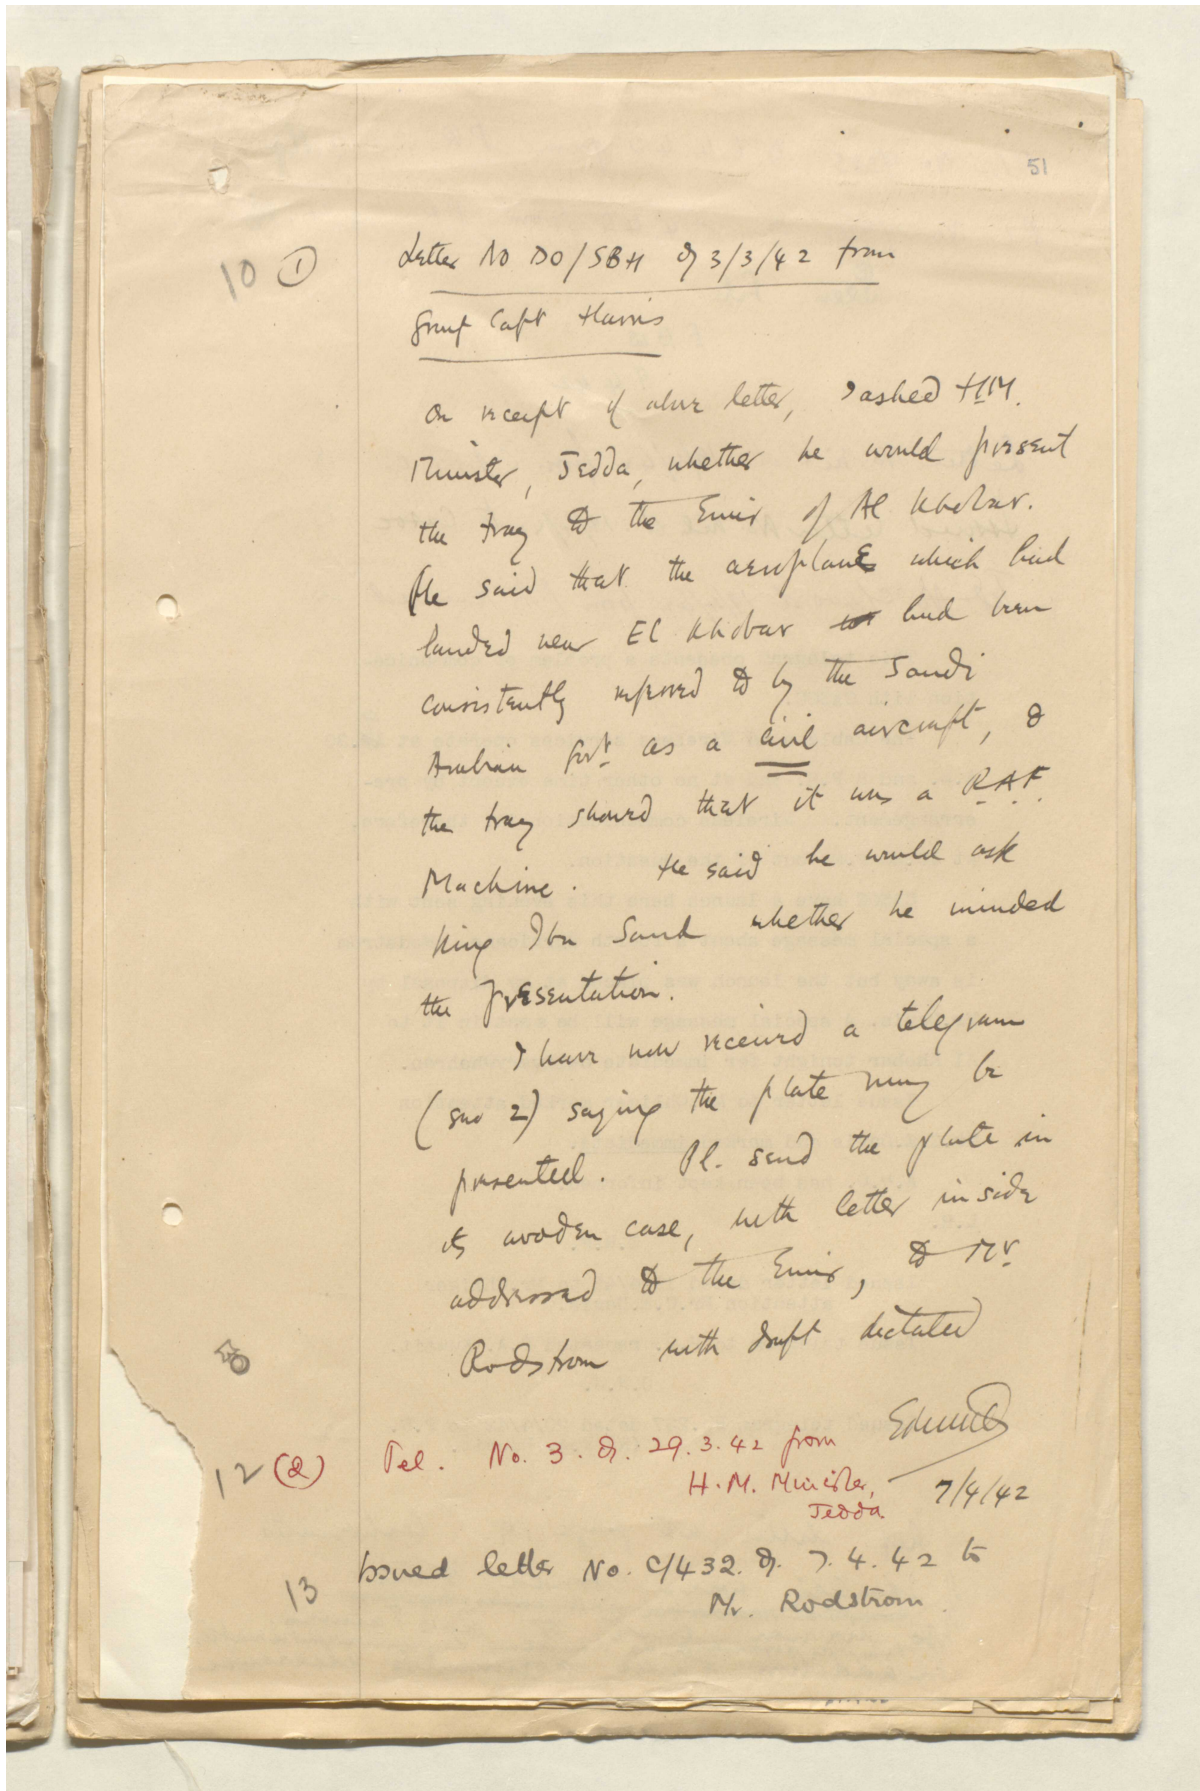 51
10 (1) Letter No DO/SBH of 3/3/42 from
Group Capt Harris
On receipt of above letter, I asked H.M.
Minister, Jedda, whether he would present
the tray to the Emir of Al Khobar.
He said that the aeroplane which had
landed near El Khobar had been
consistently referred to by the Saudi
Arabian Govt as a civil aircraft, &
the tray showed that it was a R.A.F.
Machine. He said he would ask
King Ibn Saud whether he minded
the presentation.
I have now received a telegram
(sno 2) saying the plate may be
presented. Pl. send the plate in
its wooden case, with letter inside
addressed to the Emir, to Mr
Rodstrom with draft dictated
12 (2) Tel. No. 3. of. 29.3.42 from
H.M. Minister,
Jedda
7/4/42
13 Issued letter No. C/432. of. 7.4.42 to
Mr. Rodstrom.